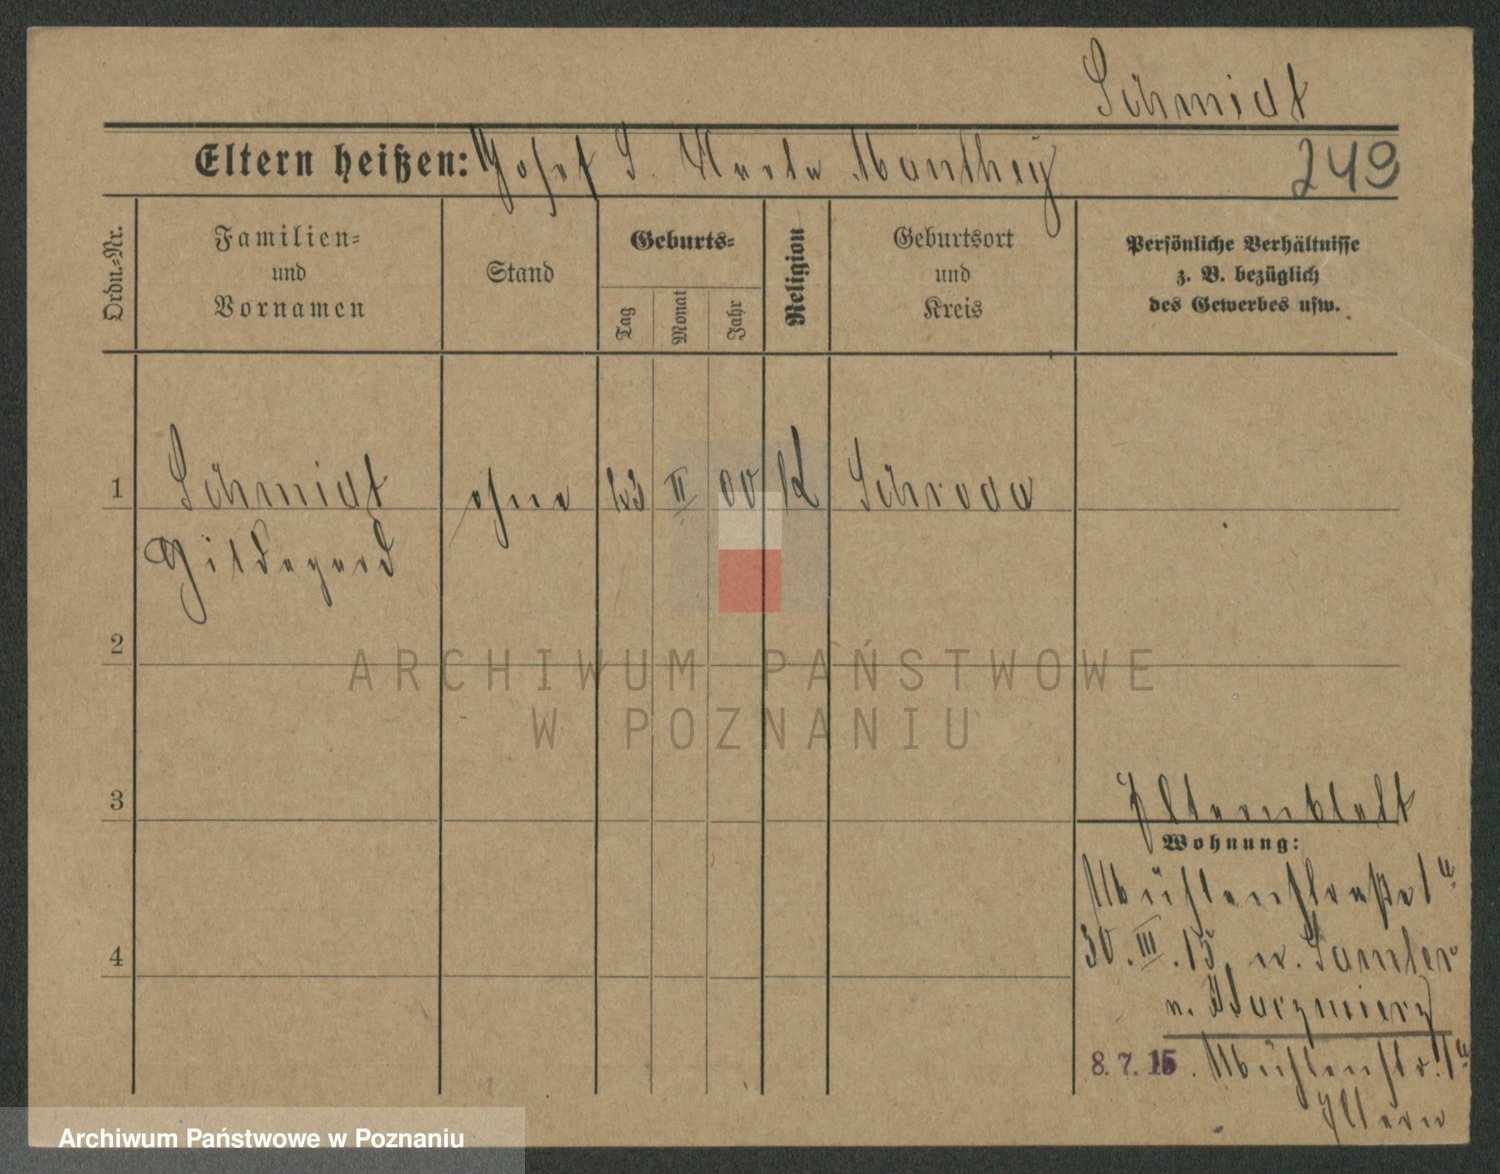 Schmidt
Eltern heißen: Josef S. Maria Manthey 249
Ordn.-Nr.
Familien-
und
Vornamen
Stand
Geburts-
Tag
Monat
Jahr
Religion
Geburtsort
und
Kreis
Persönliche Verhältnisse
z. B. bezüglich
des Gewerbes usw.
1 Schmidt ohne 23 II 00 K Schroda
Hildegard
2
ARCHIWUM PAŃSTWOWE
W POZNANIU
3
Elternblatt
Wohnung:
Mühlenstraße 1a
30. III. 15. n. Samter
4
8. 7. 15. Mühlenstr. 1a
Eltern
Archiwum Państwowe w Poznaniu